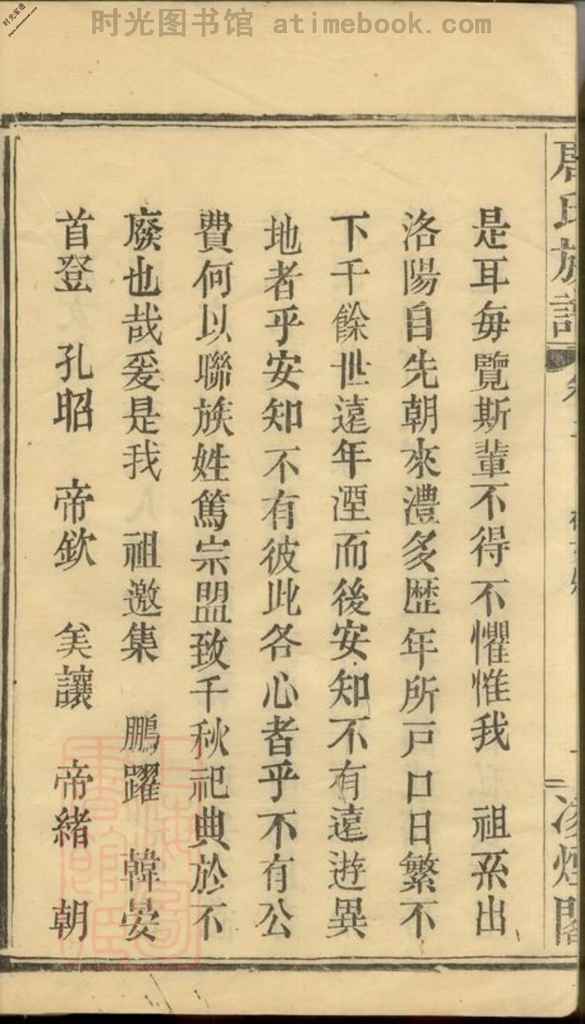 时光图书馆 atimebook.com
是耳每覽斯輩不得不懼惟我 祖系出
洛陽自先朝來澧多歷年所戸口日繁不
下千餘世遠年湮而後安知不有遠遊異
地者乎安知不有彼此各心者乎不有公
費何以聯族姓篤宗盟致千秋祀典於不
廢也哉爰是我 祖邀集 鵬躍 韓晏
首登 孔昭 帝欽 矣讓 帝緒 朝